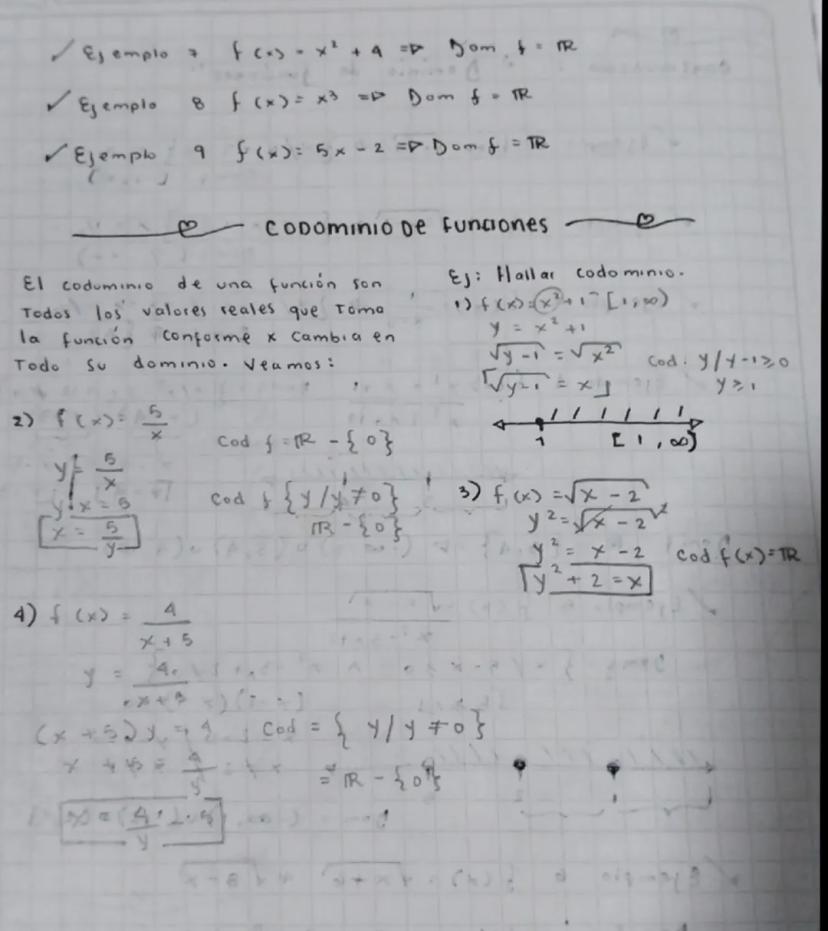 ✓ Ejemplo 7 f(x) = x² + 4 => Dom f = ℝ
✓ Ejemplo 8 f(x) = x³ => Dom f = ℝ
✓ Ejemplo 9 f(x) = 5x - 2 => Dom f = ℝ
CODOMINIO DE FUNCIONES
El codominio de una función son
Todos los valores reales que Toma
la función conforme x cambia en
Todo su dominio. Veamos:
Ej: Hallar codominio.
1) f(x) = x² + 1 - [1, ∞)
y = x² + 1
√y-1 = √x²
√y-1 = x
Cod: y/y-1≥0
y≥1
1 [1, ∞)
2) f(x) = 5/x
y = 5/x
y · x = 5
x = 5/y
Cod f = ℝ - {0}
Cod f {y/y≠0}
ℝ - {0}
3) f(x) = √x - 2
y² = √x - 2²
y² = x - 2
y² + 2 = x
Cod f(x) = ℝ
4) f(x) = 4/x + 5
y = 4/x+5
(x + 5)y = 4
Cod = {y/y≠0}
= ℝ - {0}